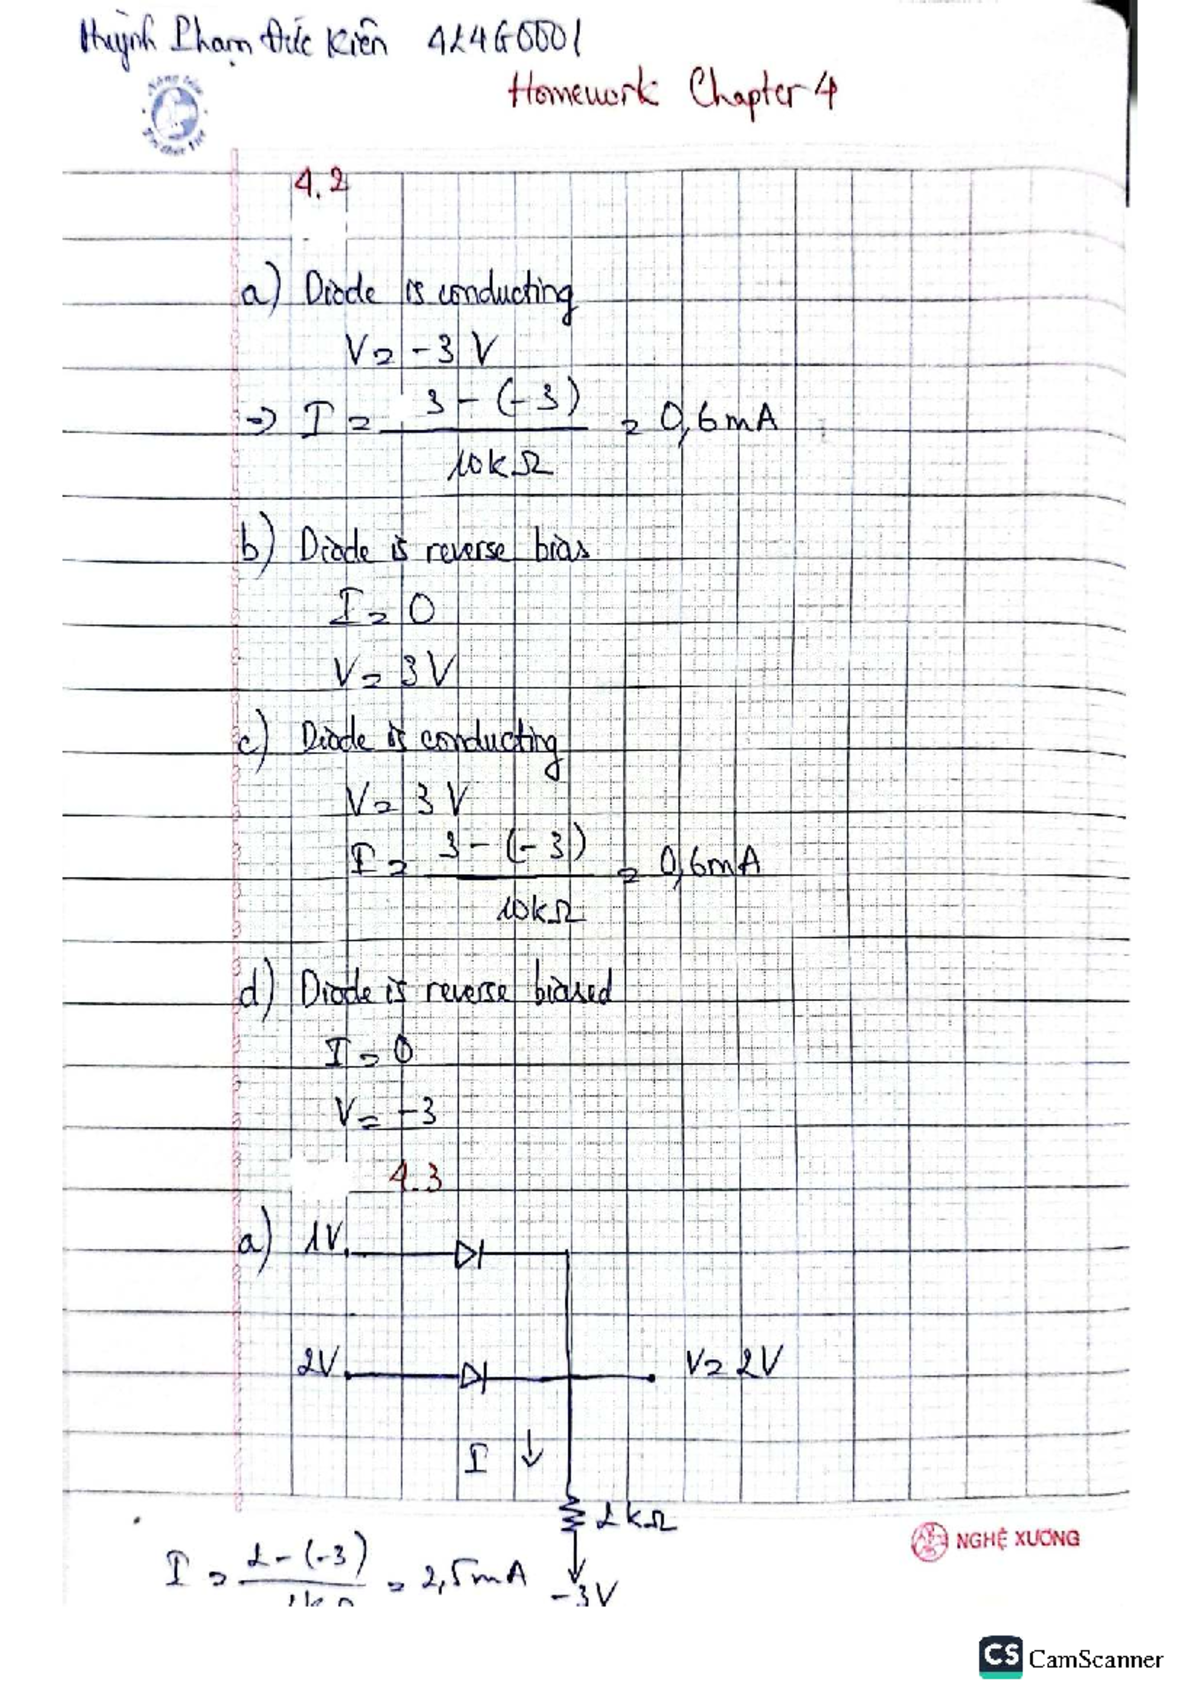 Huỳnh Phạm Đức Kiên 424G0001
Homework Chapter 4
4.2
a) Diode is conducting
V = -3 V
=> I = 3 - (-3) / 10kΩ = 0,6mA
b) Diode is reverse bias
I = 0
V = 3V
c) Diode is conducting
V = 3 V
I = 3 - (-3) / 10kΩ = 0,6mA
d) Diode is reverse biased
I = 0
V = -3
4.3
a) 1V
2V V = 2V
I ↓
2kΩ
NGHỆ XƯƠNG
I = 2 - (-3) / = 2,5mA
-3V
CS CamScanner